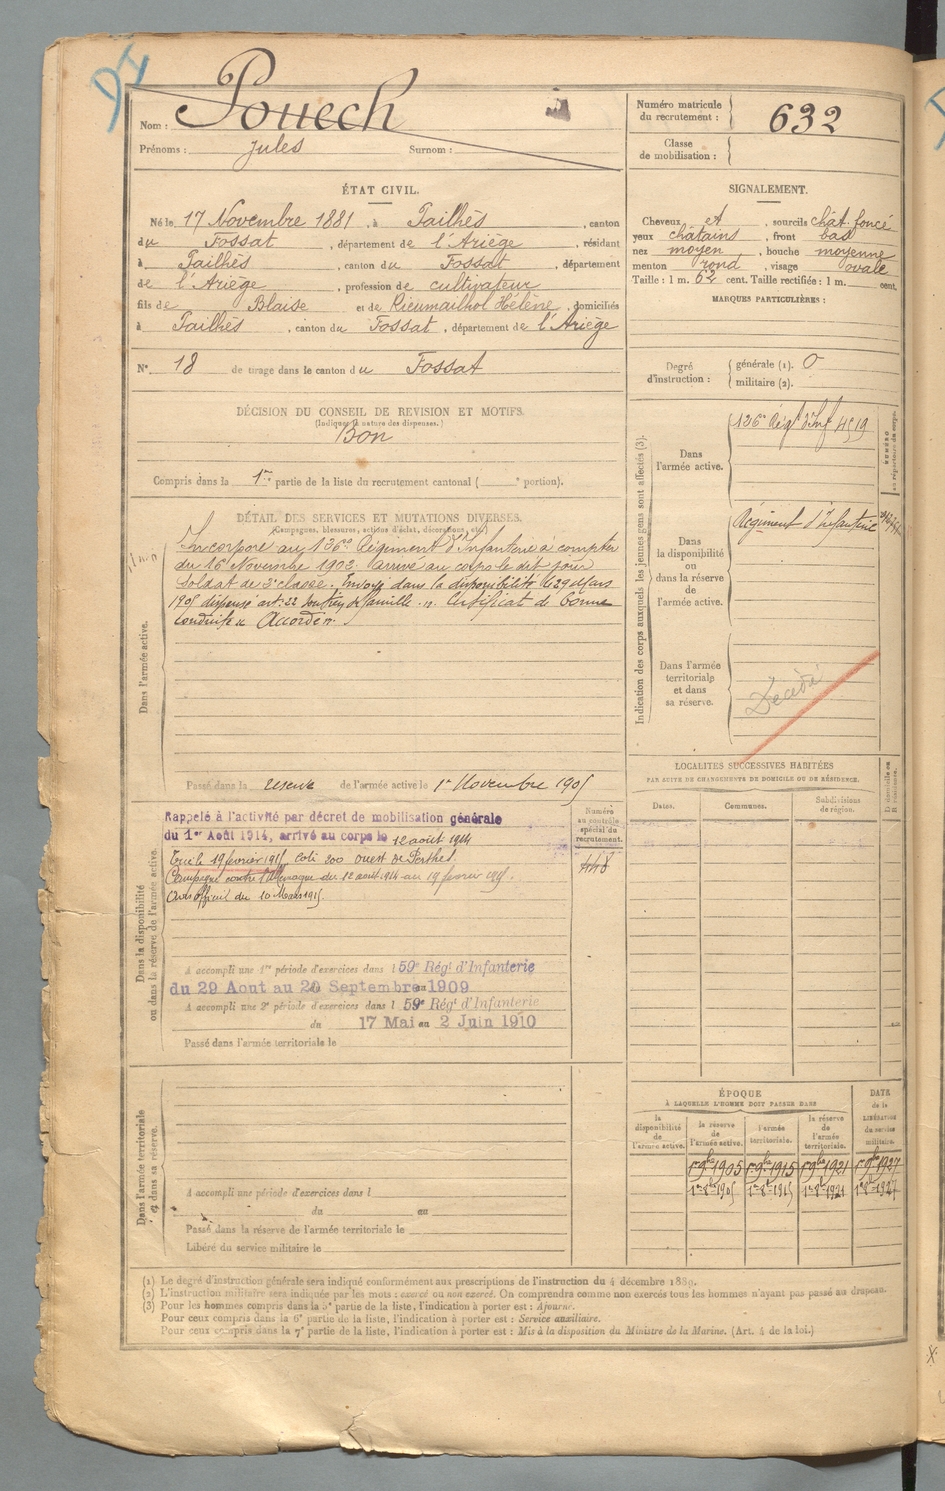 DI
Nom : Pouech
Prénoms : Jules Surnom :
Numéro matricule du recrutement : 632
Classe de mobilisation :
ÉTAT CIVIL.
Né le 17 Novembre 1881, à Pailhès, canton
du Fossat, département de l'Ariège, résidant
à Pailhès, canton du Fossat, département
de l'Ariège, profession de cultivateur
fils de Blaise et de Rieumailhol Hélène, domiciliés
à Pailhès, canton du Fossat, département de l'Ariège
N° 18 de tirage dans le canton du Fossat
SIGNALEMENT.
Cheveux et, sourcils chât. foncé
yeux châtains, front bas
nez moyen, bouche moyenne
menton rond, visage ovale
Taille : 1 m. 62 cent. Taille rectifiée : 1 m. cent.
MARQUES PARTICULIÈRES :
Degré d'instruction : générale (1). 0
militaire (2).
DÉCISION DU CONSEIL DE REVISION ET MOTIFS.
(Indiquer la nature des dispenses.)
Bon
Compris dans la 1re partie de la liste du recrutement cantonal ( e portion).
DÉTAIL DES SERVICES ET MUTATIONS DIVERSES.
(Campagnes, blessures, actions d'éclat, décorations, etc.)
Dans l'armée active.
Incorporé au 136e Régiment d'Infanterie à compter
du 16 Novembre 1902 arrivé au corps le dit jour
Soldat de 2e classe. Envoyé dans la disponibilité le 29 Mars
1905 dispensé art. 22 soutien de famille. Certificat de bonne
conduite Accordé
Passé dans la réserve de l'armée active le 1er Novembre 1905
Indication des corps auxquels les jeunes gens sont affectés (3).
NUMÉRO au répertoire du corps.
Dans l'armée active.
136e Régt d'Inf 4519
Dans la disponibilité ou dans la réserve de l'armée active.
Régiment d'Infanterie
Dans l'armée territoriale et dans sa réserve.
Décédé
Dans la disponibilité ou dans la réserve de l'armée active.
Rappelé à l'activité par décret de mobilisation générale
du 1er Août 1914, arrivé au corps le 12 août 1914
Tué le 19 février 1915 Cote 200 ouest de Perthes.
Campagne contre l'Allemagne du 12 août 1914 au 19 février 1915.
Avis officiel du 10 Mars 1915.
Numéro au contrôle spécial du recrutement.
448
A accompli une 1re période d'exercices dans l 59e Régt d'Infanterie
du 29 Aout au 20 Septembre 1909
A accompli une 2e période d'exercices dans l 59e Régt d'Infanterie
du 17 Mai au 2 Juin 1910
Passé dans l'armée territoriale le
LOCALITÉS SUCCESSIVES HABITÉES
PAR SUITE DE CHANGEMENTS DE DOMICILE OU DE RÉSIDENCE.
Dates. Communes. Subdivisions de région. D. domicile ou R. résidence.
Dans l'armée territoriale et dans sa réserve.
A accompli une période d'exercices dans l
du au
Passé dans la réserve de l'armée territoriale le
Libéré du service militaire le
ÉPOQUE
À LAQUELLE L'HOMME DOIT PASSER DANS
la disponibilité de l'armée active. la réserve de l'armée active. l'armée territoriale. la réserve de l'armée territoriale.
DATE de la LIBÉRATION du service militaire.
1er 9bre 1905 1er 9bre 1915 1er 9bre 1921 1er 9bre 1927
1er 8bre 1905 1er 8bre 1915 1er 8bre 1921 1er 8bre 1927
(1) Le degré d'instruction générale sera indiqué conformément aux prescriptions de l'instruction du 4 décembre 1889.
(2) L'instruction militaire sera indiquée par les mots : exercé ou non exercé. On comprendra comme non exercés tous les hommes n'ayant pas passé au drapeau.
(3) Pour les hommes compris dans la 5e partie de la liste, l'indication à porter est : Ajourné.
Pour ceux compris dans la 6e partie de la liste, l'indication à porter est : Service auxiliaire.
Pour ceux compris dans la 7e partie de la liste, l'indication à porter est : Mis à la disposition du Ministre de la Marine. (Art. 4 de la loi.)